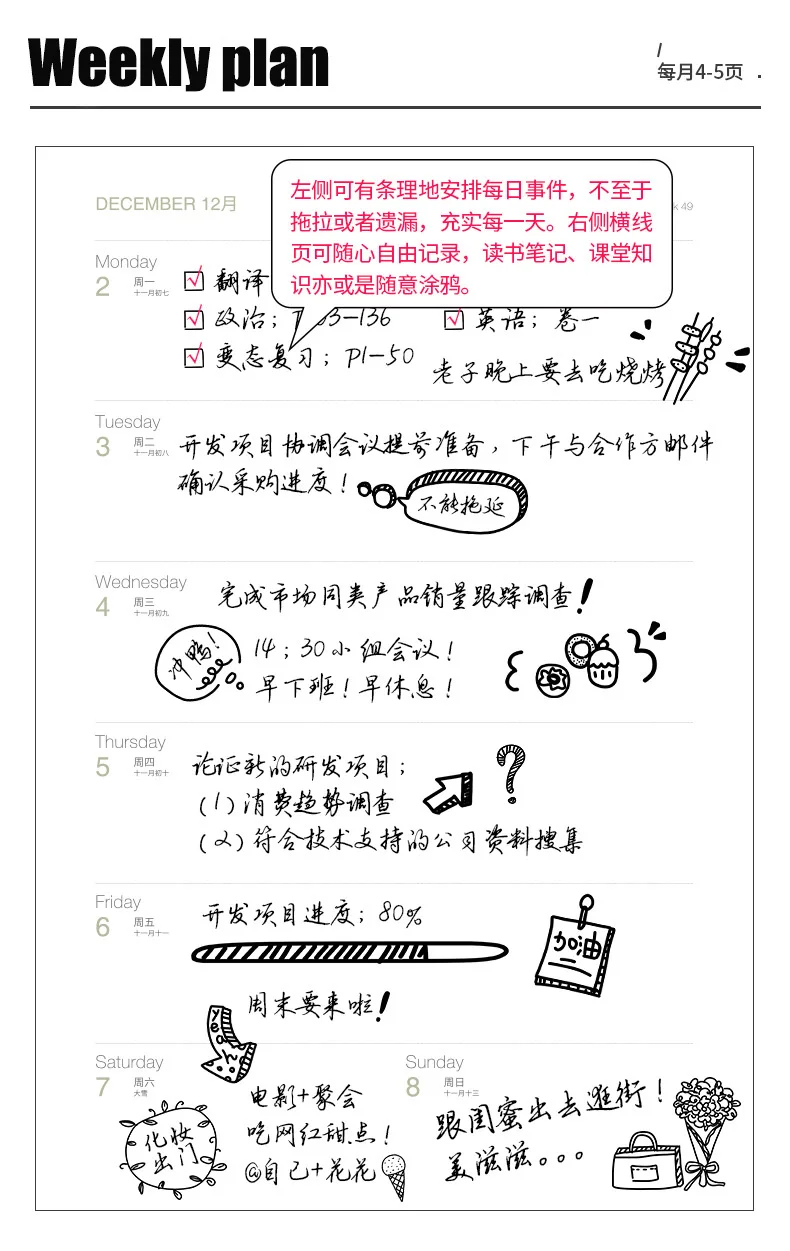 Weekly plan
/
每月4-5页 .
DECEMBER 12月
49
左侧可有条理地安排每日事件，不至于
拖拉或者遗漏，充实每一天。右侧横线
页可随心自由记录，读书笔记、课堂知
识亦或是随意涂鸦。
Monday
2 周一
十一月初七
翻译
政治；
3—136
英语；卷一
变态复习；P1—50
老子晚上要去吃烧烤
Tuesday
3 周二
十一月初八
开发项目协调会议提前准备，下午与合作方邮件
确认采购进度！
不能拖延
Wednesday
4 周三
十一月初九
完成市场同类产品销量跟踪调查！
冲鸭！
14；30小组会议！
早下班！早休息！
Thursday
5 周四
十一月初十
论证新的研发项目；
(1)消费趋势调查
(2)符合技术支持的公司资料搜集
?
Friday
6 周五
十一月十一
开发项目进度；80%
加油
周末要来啦！
yeah
Saturday
7 周六
大雪
化妆
出门
电影+聚会
吃网红甜点！
@自己+花花
Sunday
8 周日
十一月十三
跟闺蜜出去逛街！
美滋滋。。。